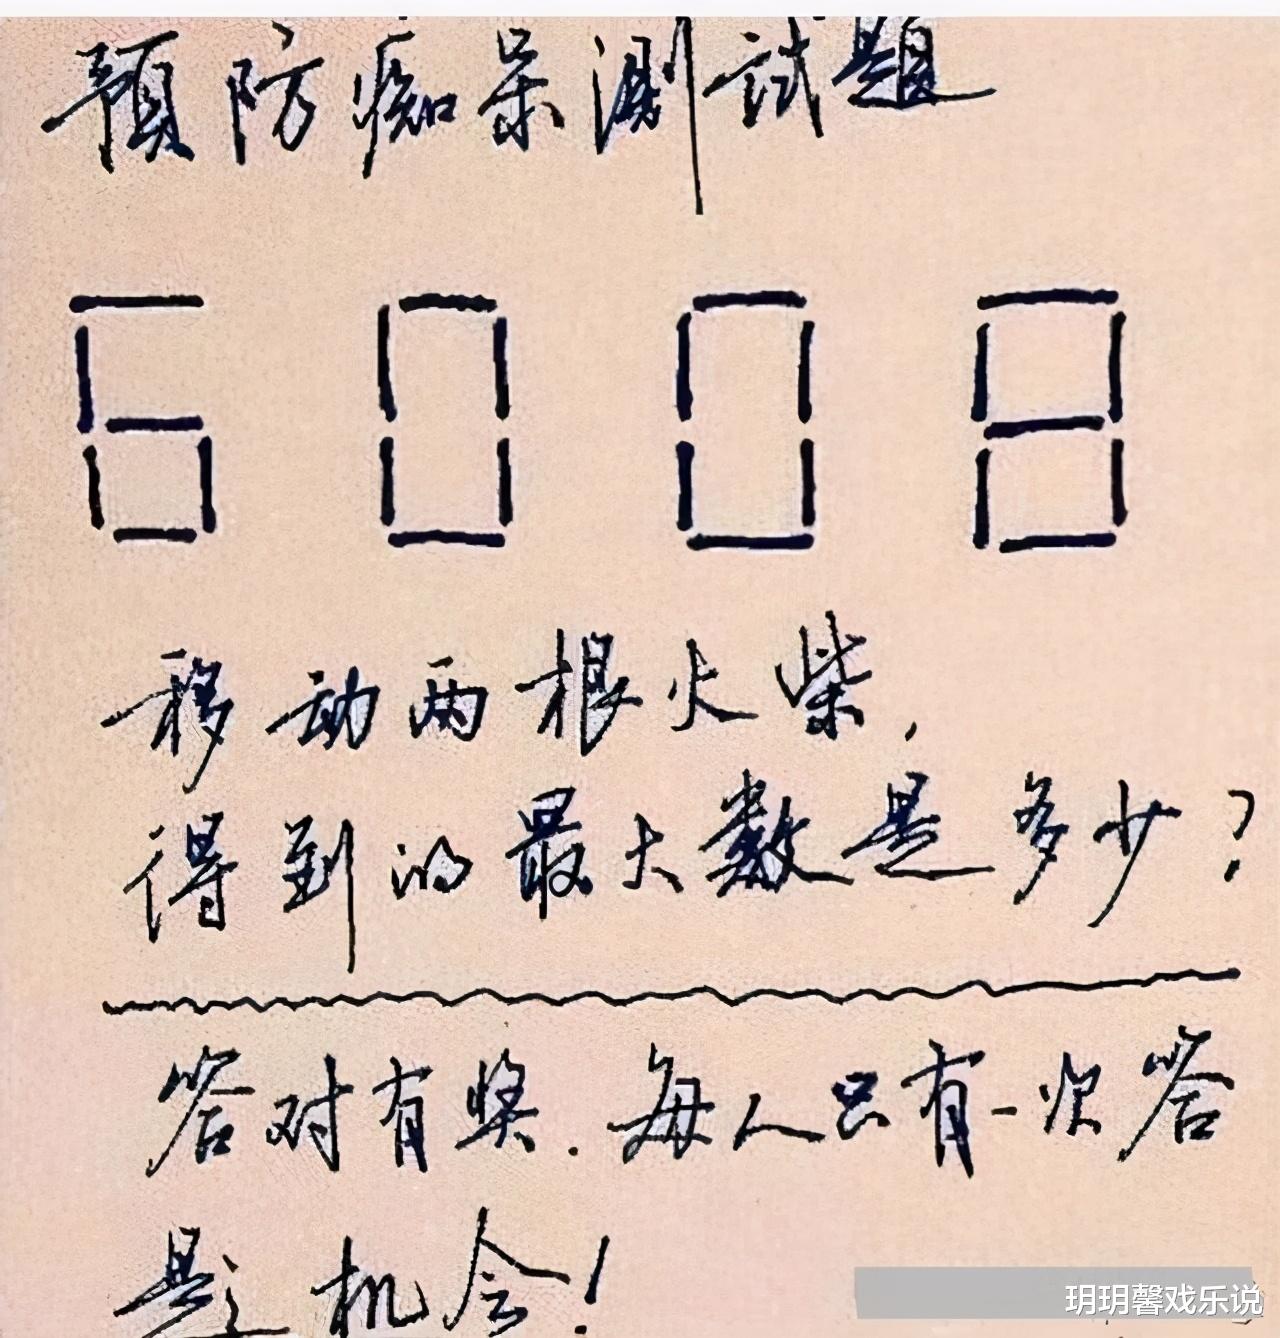 预防痴呆测试题
6008
移动两根火柴,
得到的最大数是多少?
答对有奖.每人只有一次答
题机会!
玥玥馨戏乐说